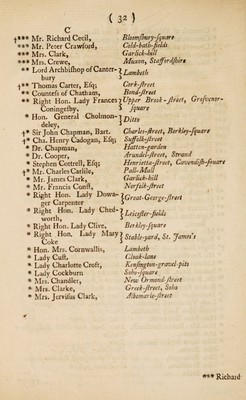 ( 32 )
C
†*** Mr. Richard Cecil, Bloomsbury-square
*** Mr. Peter Crawford, Cold-bath-fields
*** Mrs. Clark, Garlick-hill
*** Mrs. Crewe, Muxon, Staffordshire
** Lord Archbishop of Canter-
bury } Lambeth
†** Thomas Carter, Esq; Cork-street
** Countess of Chatham, Bond-street
** Right Hon. Lady Frances
Coningesby, } Upper Brook-street, Grosvenor-
square
** Hon. General Cholmon-
deley, } Ditto
†* Sir John Chapman, Bart. Charles-street, Berkley-square
†* Cha. Henry Cadogan, Esq; Suffolk-street
* Dr. Chapman, Hatton-garden
* Dr. Cooper, Arundel-street, Strand
* Stephen Cottrell, Esq; Henrietta-street, Cavendish-square
†* Mr. Charles Catlile, Pall-Mall
* Mr. James Clark, Garlick-hill
* Mr. Francis Const, Norfolk-street
* Right Hon. Lady Dowa-
ger Carpenter } Great-George-street
* Right Hon. Lady Ched-
worth, } Leicester-fields
* Right Hon. Lady Clive, Berkley-square
* Right Hon. Lady Mary
Coke } Stable-yard, St. James's
* Hon. Mrs. Cornwallis, Lambeth
* Lady Cust, Cloak-lane
* Lady Charlotte Croft, Kensington-gravel-pits
* Lady Cockburn Soho-square
* Mrs. Chandler, New Ormond-street
* Mrs. Clarke, Greek-street, Soho
* Mrs. Jervisus Clark, Albemarle-street
*** Richard